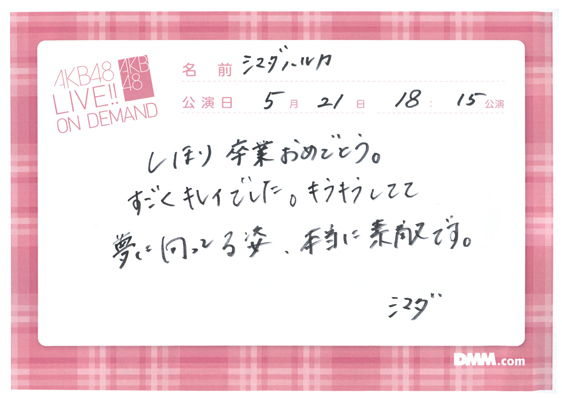 AKB48
LIVE!!
ON DEMAND
AKB
48
名前 シマダハルカ
公演日 5月21日 18:15公演
しほり 卒業おめでとう。
すごくキレイでした。キラキラしてて
夢に向ってる姿、本当に素敵です。
シマダ
DMM.com